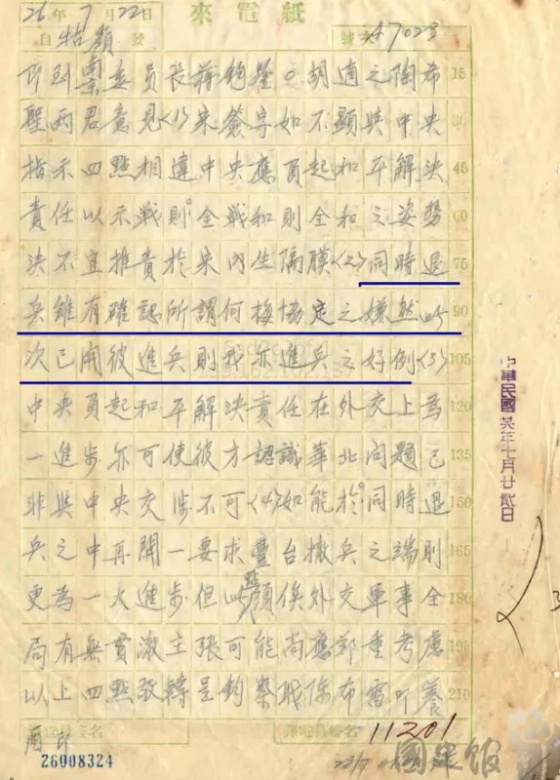 來電紙
26年7月22日
自牯嶺發 號次47023
委員長蔣鈞鑒。胡適之陶希
聖兩君意見(1)宋簽字如不顯與中央
指示四點相違中央應負起和平解決
責任以示戰則全戰和則全和之姿勢
決不宜推責於宋內生隔膜(2)同時退
兵雖有確認所謂何梅協定之嫌然此
次已開彼進兵則我亦進兵之好例(3)
中央負起和平解決責任在外交上為
一進步亦可使彼方認識華北問題已
非與中央交涉不可(4)如能於同時退
兵之中再開一要求豐台撤兵之端則
更為一大進步但此點顏俟外交軍事全
局有無貫澈主張可能尚應鄭重考慮
以上四點敬轉呈鈞察職陳布雷叩養
酉印
11201
26008324
15
45
60
75
90
105
120
135
150
165
180
210
中華民國廿六年七月廿弍日
國史館